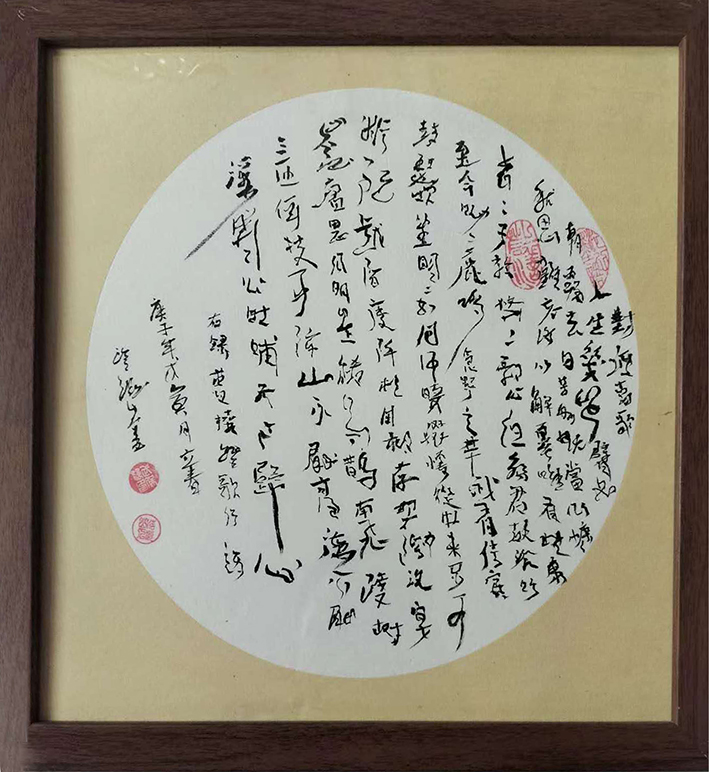 對酒當歌
人生幾何譬如
朝露去日苦多慨當以慷
憂思難忘何以解憂唯有杜康
青青子衿悠悠我心但為君故沉吟
至今呦呦鹿鳴食野之苹我有嘉賓
鼓瑟吹笙明明如月何時掇憂從中來不可
斷絕越陌度阡枉用相存契闊談讌
心念舊恩月明星稀烏鵲南飛繞樹
三匝何枝可依山不厭高海不厭
深周公吐哺天下歸心
右錄曹操短歌行詩
庚子年戊寅月書